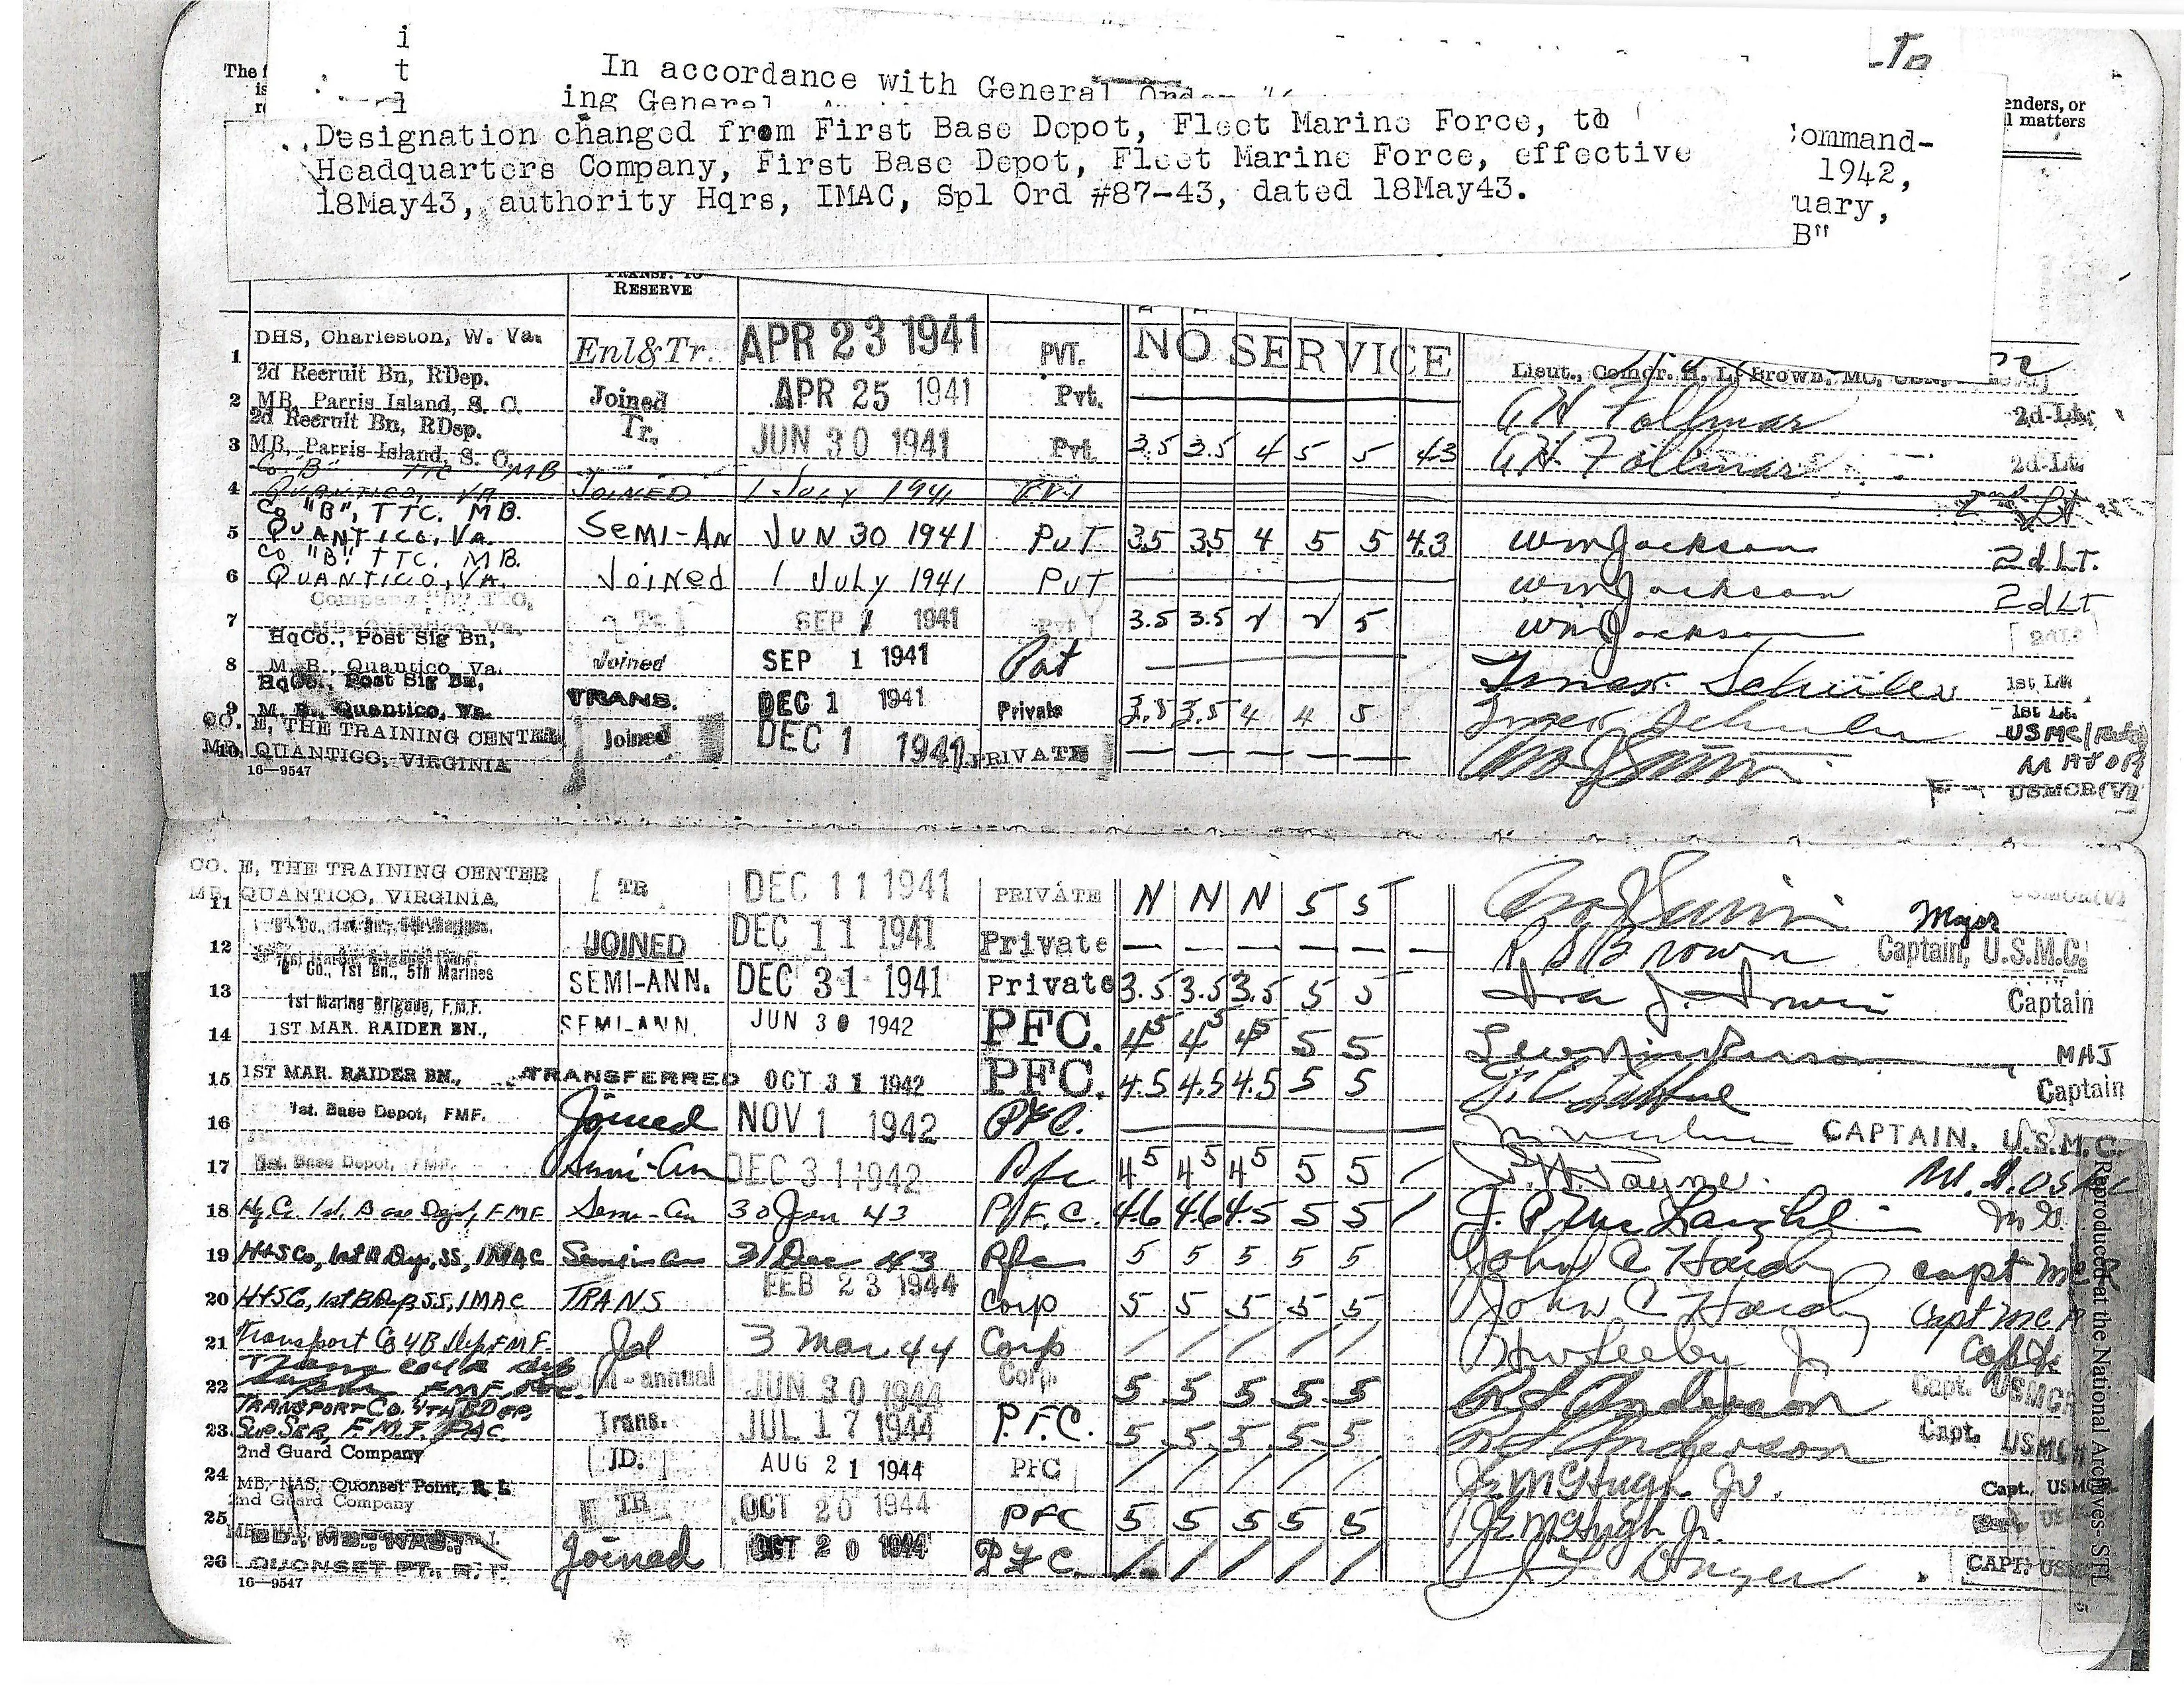 i
t
l
The f
is
r
In accordance with General Order
ing General
To
enders, or
l matters
Designation changed from First Base Depot, Fleet Marine Force, to
Headquarters Company, First Base Depot, Fleet Marine Force, effective
18May43, authority Hqrs, IMAC, Spl Ord #87-43, dated 18May43.
ommand-
1942,
uary,
B"
TRANSF. TO
RESERVE
1 DHS, Charleston, W. Va. Enl&Tr. APR 23 1941 PVT. NO SERVICE Lieut., Comdr. H. L. Brown, MC,
2d Recruit Bn, RDep.
2 MB, Parris Island, S. C. Joined APR 25 1941 Pvt. G H Follmar 2d Lt.
2d Recruit Bn, RDep.
3 MB, Parris Island, S. C. Tr. JUN 30 1941 Pvt. 3.5 3.5 4 5 5 4.3 G H Follmar 2d Lt.
Co. "B" TTC MB
4 QUANTICO, VA JOINED 1 July 1941 PVT 2nd Lt
Co "B", TTC. MB.
5 QUANTICO, Va. Semi-An JUN 30 1941 PvT 3.5 3.5 4 5 5 4.3 Wm Jackson 2d LT.
Co "B" TTC. MB.
6 QUANTICO, VA. Joined 1 July 1941 PvT Wm Jackson 2d LT
Company "B" TTC,
7 MB, Quantico, Va. Tr. SEP 1 1941 Pvt 3.5 3.5 √ √ 5 Wm Jackson
HqCo., Post Sig Bn,
8 M. B., Quantico, Va. Joined SEP 1 1941 Pvt Schuler 1st Lt.
HqCo., Post Sig Bn,
9 M. B., Quantico, Va. TRANS. DEC 1 1941 Private 3.5 3.5 4 4 5 Schuler 1st Lt.
USMC
CO. E, THE TRAINING CENTER
10 MB, QUANTICO, VIRGINIA Joined DEC 1 1941 PRIVATE — — — — — MAJOR
16—9547 USMCR(V)
CO. E, THE TRAINING CENTER
11 MB, QUANTICO, VIRGINIA TR DEC 11 1941 PRIVATE N N N 5 5 Major USMCR(V)
12 JOINED DEC 11 1941 Private — — — — — — Brown Captain, U.S.M.C.
Co., 1st Bn., 5th Marines
13 SEMI-ANN. DEC 31 1941 Private 3.5 3.5 3.5 5 5 Ira J. Irwin Captain
1st Marine Brigade, F.M.F.
14 1ST MAR. RAIDER BN., SEMI-ANN. JUN 30 1942 PFC. 4.5 4.5 4.5 5 5 MAJ
15 1ST MAR. RAIDER BN., TRANSFERRED OCT 31 1942 PFC. 4.5 4.5 4.5 5 5 Captain
16 1st. Base Depot, FMF. Joined NOV 1 1942 Pfc. CAPTAIN, U.S.M.C.
17 1st. Base Depot, FMF. Semi-An DEC 31 1942 Pfc 4.5 4.5 4.5 5 5 / Payne.
18 Hq. Co. 1st. Base Depot, FMF Semi-An 30 Jun 43 P.F.C. 4.6 4.6 4.5 5 5 / J. P. McLaughlin
19 H+S Co, 1st B Dep, SS, IMAC Semi-an 31 Dec 43 Pfc 5 5 5 5 5 John C Hardy capt
20 H+S Co, 1st B Dep SS, IMAC TRANS FEB 23 1944 Corp 5 5 5 5 5 John C Hardy Capt
21 Transport Co 4 B Dep FMF. Jd 3 Mar 44 Corp / / / / / Seeley Jr Capt
22 semi-annual JUN 30 1944 Corp 5 5 5 5 5 Anderson Capt. USMCR
TRANSPORT CO. 4TH B DEP,
23 Sup Ser, F.M.F. PAC. Trans. JUL 17 1944 P.F.C. 5 5 5 5 5 Anderson Capt. USMCR
2nd Guard Company
24 MB, NAS, Quonset Point, R. I. JD. AUG 21 1944 PFC / / / / / McHugh Jr. Capt., USMC
2nd Guard Company
25 TR OCT 20 1944 PFC 5 5 5 5 5 McHugh Jr.
MB., NAS.,
26 QUONSET PT., R. I. Joined OCT 20 1944 P.F.C. / / / / / Dwyer CAPT. USMC
16—9547
Reproduced at the National Archives STL